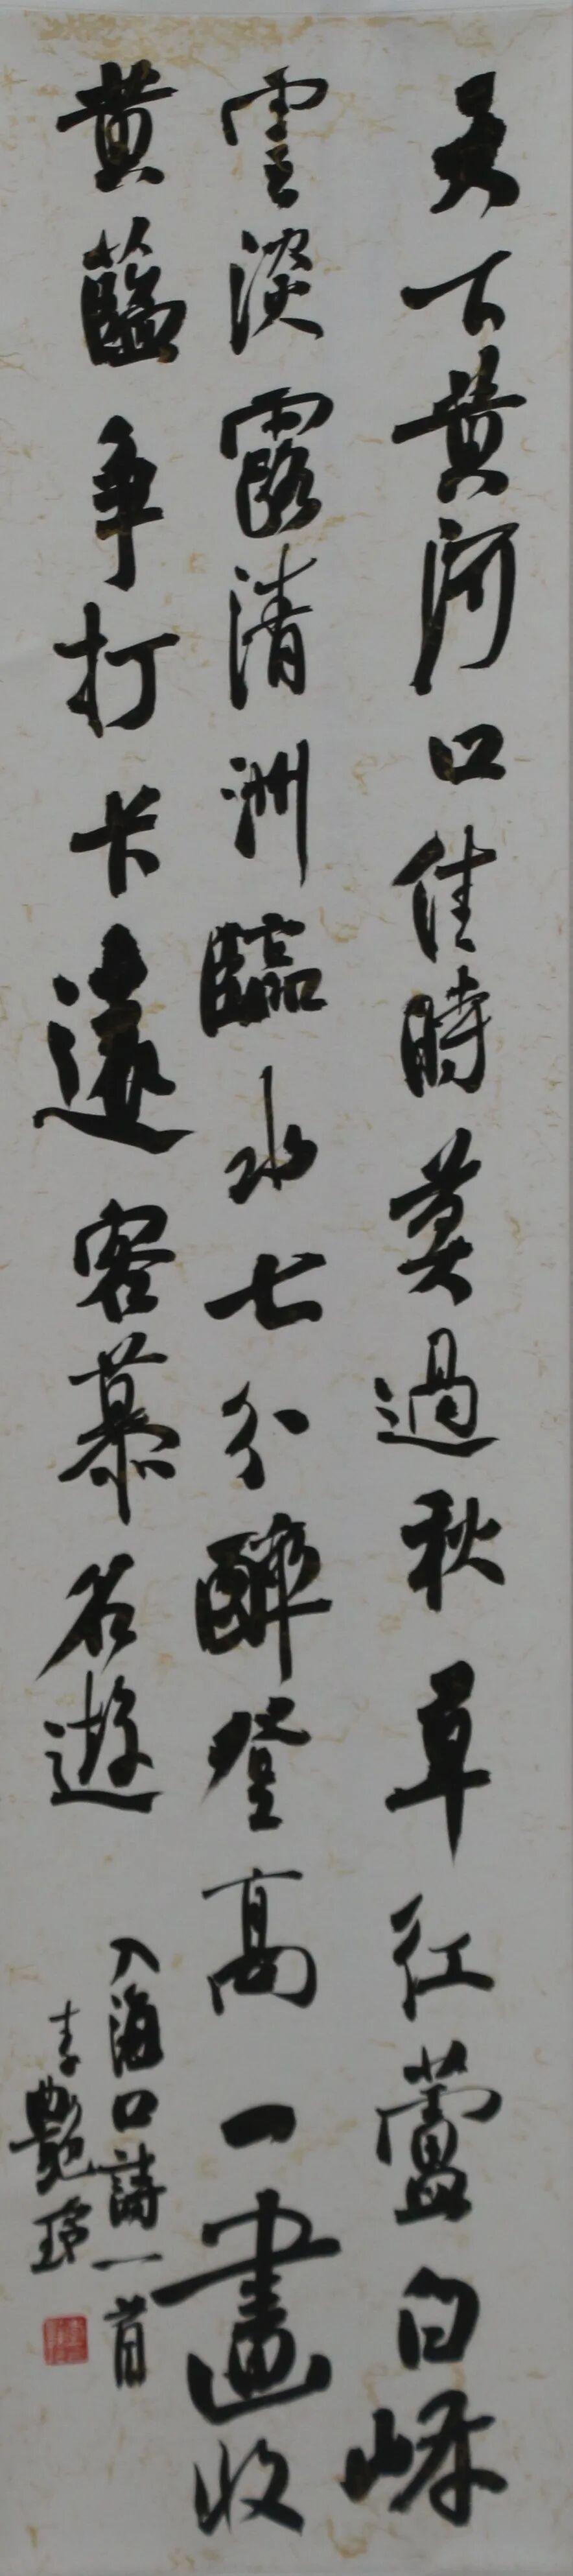 天下黄河口佳時莫過秋草紅蘆白嶼
雲淡露清洲臨水七分醉登高一畫收
黄藍争打卡遠客慕名遊
入海口詩一首
李艷